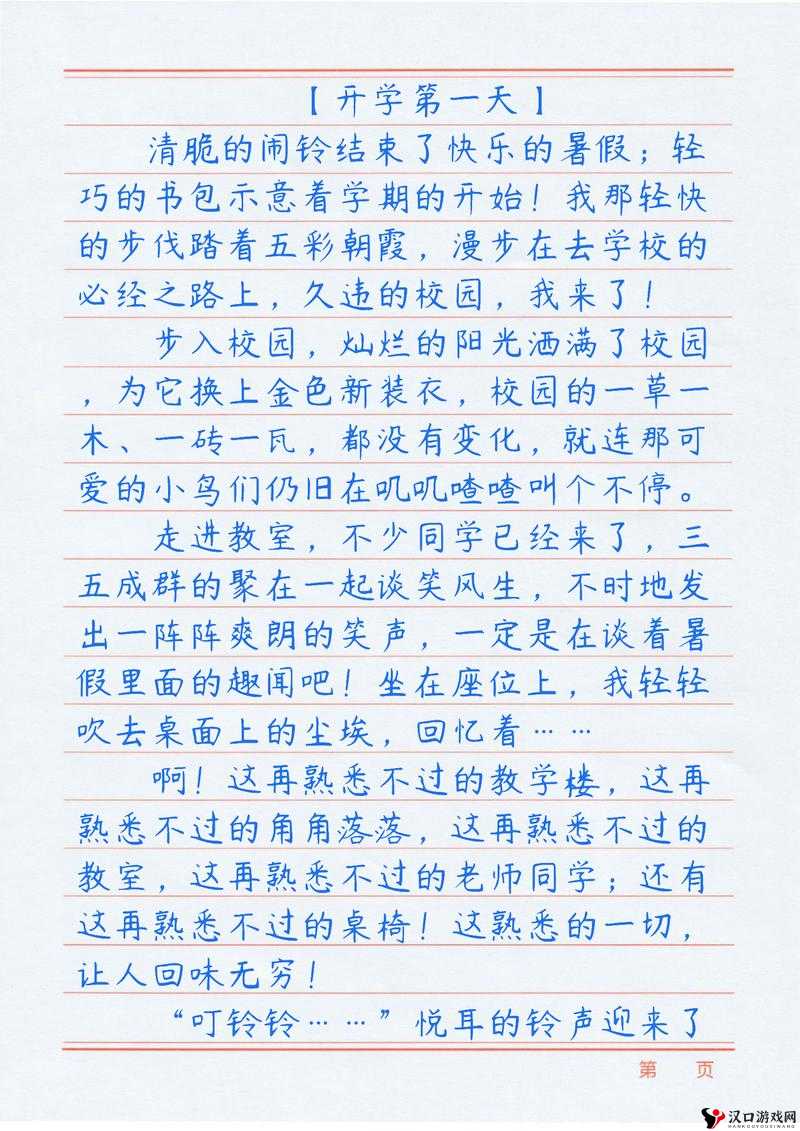 【开学第一天】
清脆的闹铃结束了快乐的暑假；轻
巧的书包示意着学期的开始！我那轻快
的步伐踏着五彩朝霞，漫步在去学校的
必经之路上，久违的校园，我来了！
步入校园，灿烂的阳光洒满了校园
，为它换上金色新装衣，校园的一草一
木、一砖一瓦，都没有变化，就连那可
爱的小鸟们仍旧在叽叽喳喳叫个不停。
走进教室，不少同学已经来了，三
五成群的聚在一起谈笑风生，不时地发
出一阵阵爽朗的笑声，一定是在谈着暑
假里面的趣闻吧！坐在座位上，我轻轻
吹去桌面上的尘埃，回忆着……
啊！这再熟悉不过的教学楼，这再
熟悉不过的角角落落，这再熟悉不过的
教室，这再熟悉不过的老师同学；还有
这再熟悉不过的桌椅！这熟悉的一切，
让人回味无穷！
“叮铃铃……”悦耳的铃声迎来了
第 页
汉口游戏网
HANKOUYOUXIWANG